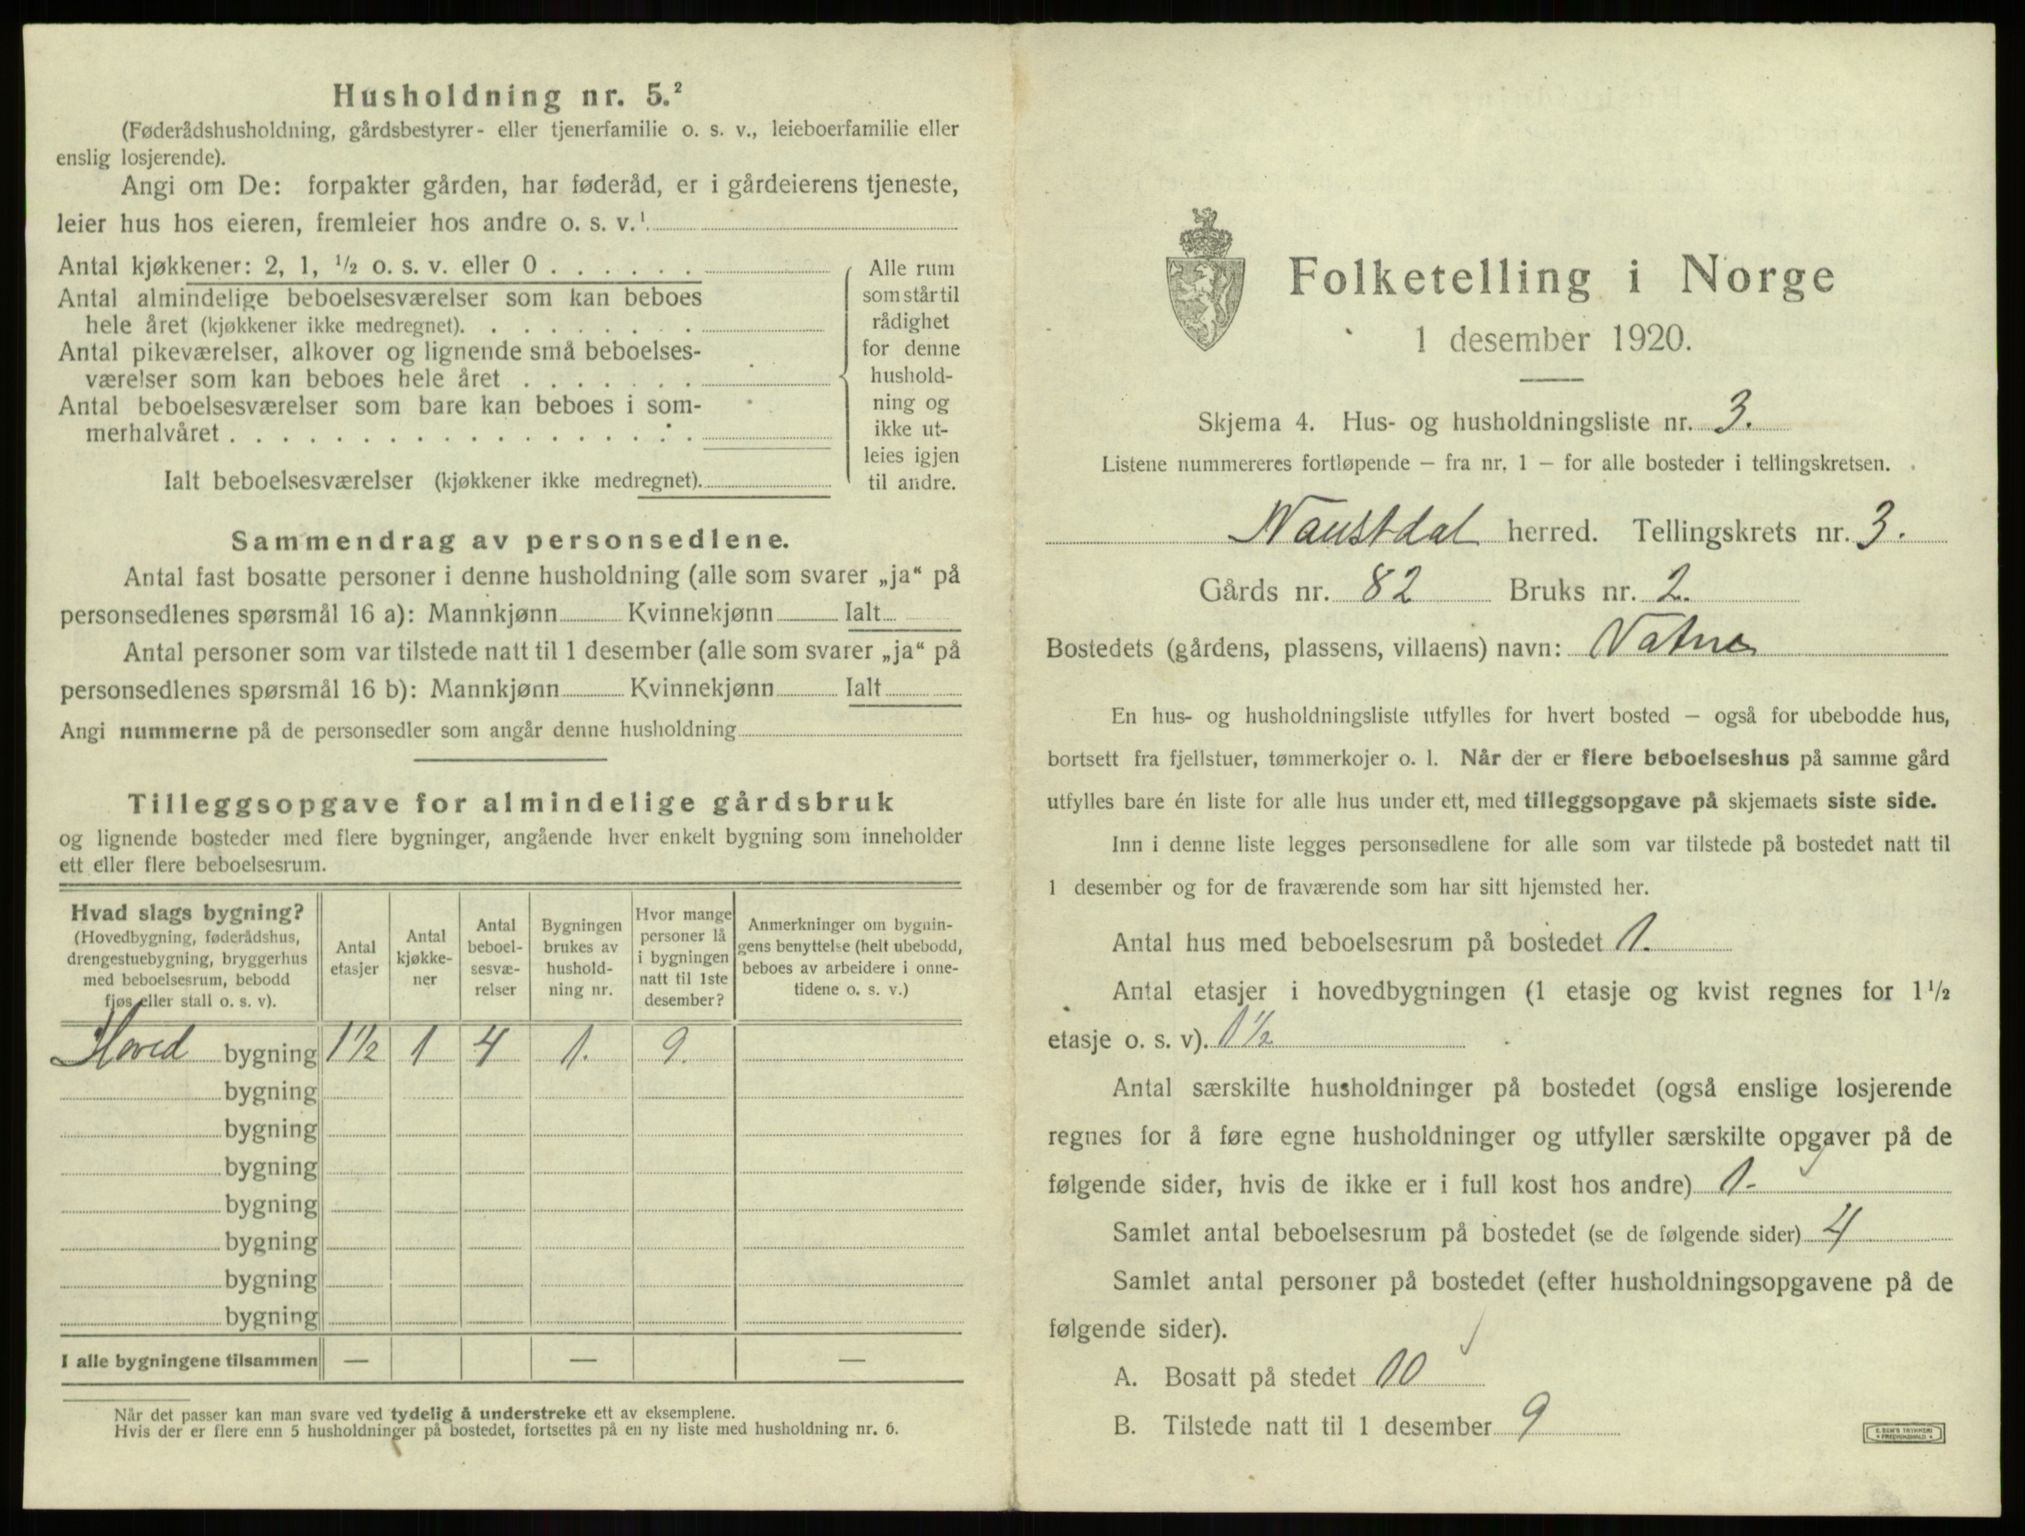 Husholdning nr. 5.²
(Føderådshusholdning, gårdsbestyrer- eller tjenerfamilie o. s. v., leieboerfamilie eller
enslig losjerende).
Angi om De: forpakter gården, har føderåd, er i gårdeierens tjeneste,
leier hus hos eieren, fremleier hos andre o. s. v.¹
Antal kjøkkener: 2, 1, ½ o. s. v. eller 0 . . . . . .
Antal almindelige beboelsesværelser som kan beboes
hele året (kjøkkener ikke medregnet). . . . . . . . .
Antal pikeværelser, alkover og lignende små beboelses-
værelser som kan beboes hele året . . . . . . .
Antal beboelsesværelser som bare kan beboes i som-
merhalvåret . . . . . . . . . . . . . . . . .
Ialt beboelsesværelser (kjøkkener ikke medregnet).
Alle rum
som står til
rådighet
for denne
hushold-
ning og
ikke ut-
leies igjen
til andre.
Sammendrag av personsedlene.
Antal fast bosatte personer i denne husholdning (alle som svarer „ja“ på
personsedlenes spørsmål 16 a): Mannkjønn Kvinnekjønn Ialt
Antal personer som var tilstede natt til 1 desember (alle som svarer „ja“ på
personsedlenes spørsmål 16 b): Mannkjønn Kvinnekjønn Ialt
Angi nummerne på de personsedler som angår denne husholdning
Tilleggsopgave for almindelige gårdsbruk
og lignende bosteder med flere bygninger, angående hver enkelt bygning som inneholder
ett eller flere beboelsesrum.
Hvad slags bygning?
(Hovedbygning, føderådshus,
drengestuebygning, bryggerhus
med beboelsesrum, bebodd
fjøs eller stall o. s. v).
Antal
etasjer
Antal
kjøkke-
ner
Antal
beboel-
sesvæ-
relser
Bygningen
brukes av
hushold-
ning nr.
Hvor mange
personer lå
i bygningen
natt til 1ste
desember?
Anmerkninger om bygnin-
gens benyttelse (helt ubebodd,
beboes av arbeidere i onne-
tidene o. s. v.)
Hoved bygning 1½ 1 4 1. 9.
bygning
bygning
bygning
bygning
bygning
bygning
bygning
I alle bygningene tilsammen — — —
Når det passer kan man svare ved tydelig å understreke ett av eksemplene.
Hvis der er flere enn 5 husholdninger på bostedet, fortsettes på en ny liste med husholdning nr. 6.
Folketelling i Norge
1 desember 1920.
Skjema 4. Hus- og husholdningsliste nr. 3.
Listene nummereres fortløpende – fra nr. 1 – for alle bosteder i tellingskretsen.
Naustdal herred. Tellingskrets nr. 3.
Gårds nr. 82 Bruks nr. 2.
Bostedets (gårdens, plassens, villaens) navn: Vatne
En hus- og husholdningsliste utfylles for hvert bosted – også for ubebodde hus,
bortsett fra fjellstuer, tømmerkojer o. l. Når der er flere beboelseshus på samme gård
utfylles bare én liste for alle hus under ett, med tilleggsopgave på skjemaets siste side.
Inn i denne liste legges personsedlene for alle som var tilstede på bostedet natt til
1 desember og for de fraværende som har sitt hjemsted her.
Antal hus med beboelsesrum på bostedet 1.
Antal etasjer i hovedbygningen (1 etasje og kvist regnes for 1½
etasje o. s. v). 1½
Antal særskilte husholdninger på bostedet (også enslige losjerende
regnes for å føre egne husholdninger og utfyller særskilte opgaver på de
følgende sider, hvis de ikke er i full kost hos andre) 1.
Samlet antal beboelsesrum på bostedet (se de følgende sider) 4
Samlet antal personer på bostedet (efter husholdningsopgavene på de
følgende sider).
A. Bosatt på stedet 10
B. Tilstede natt til 1 desember 9